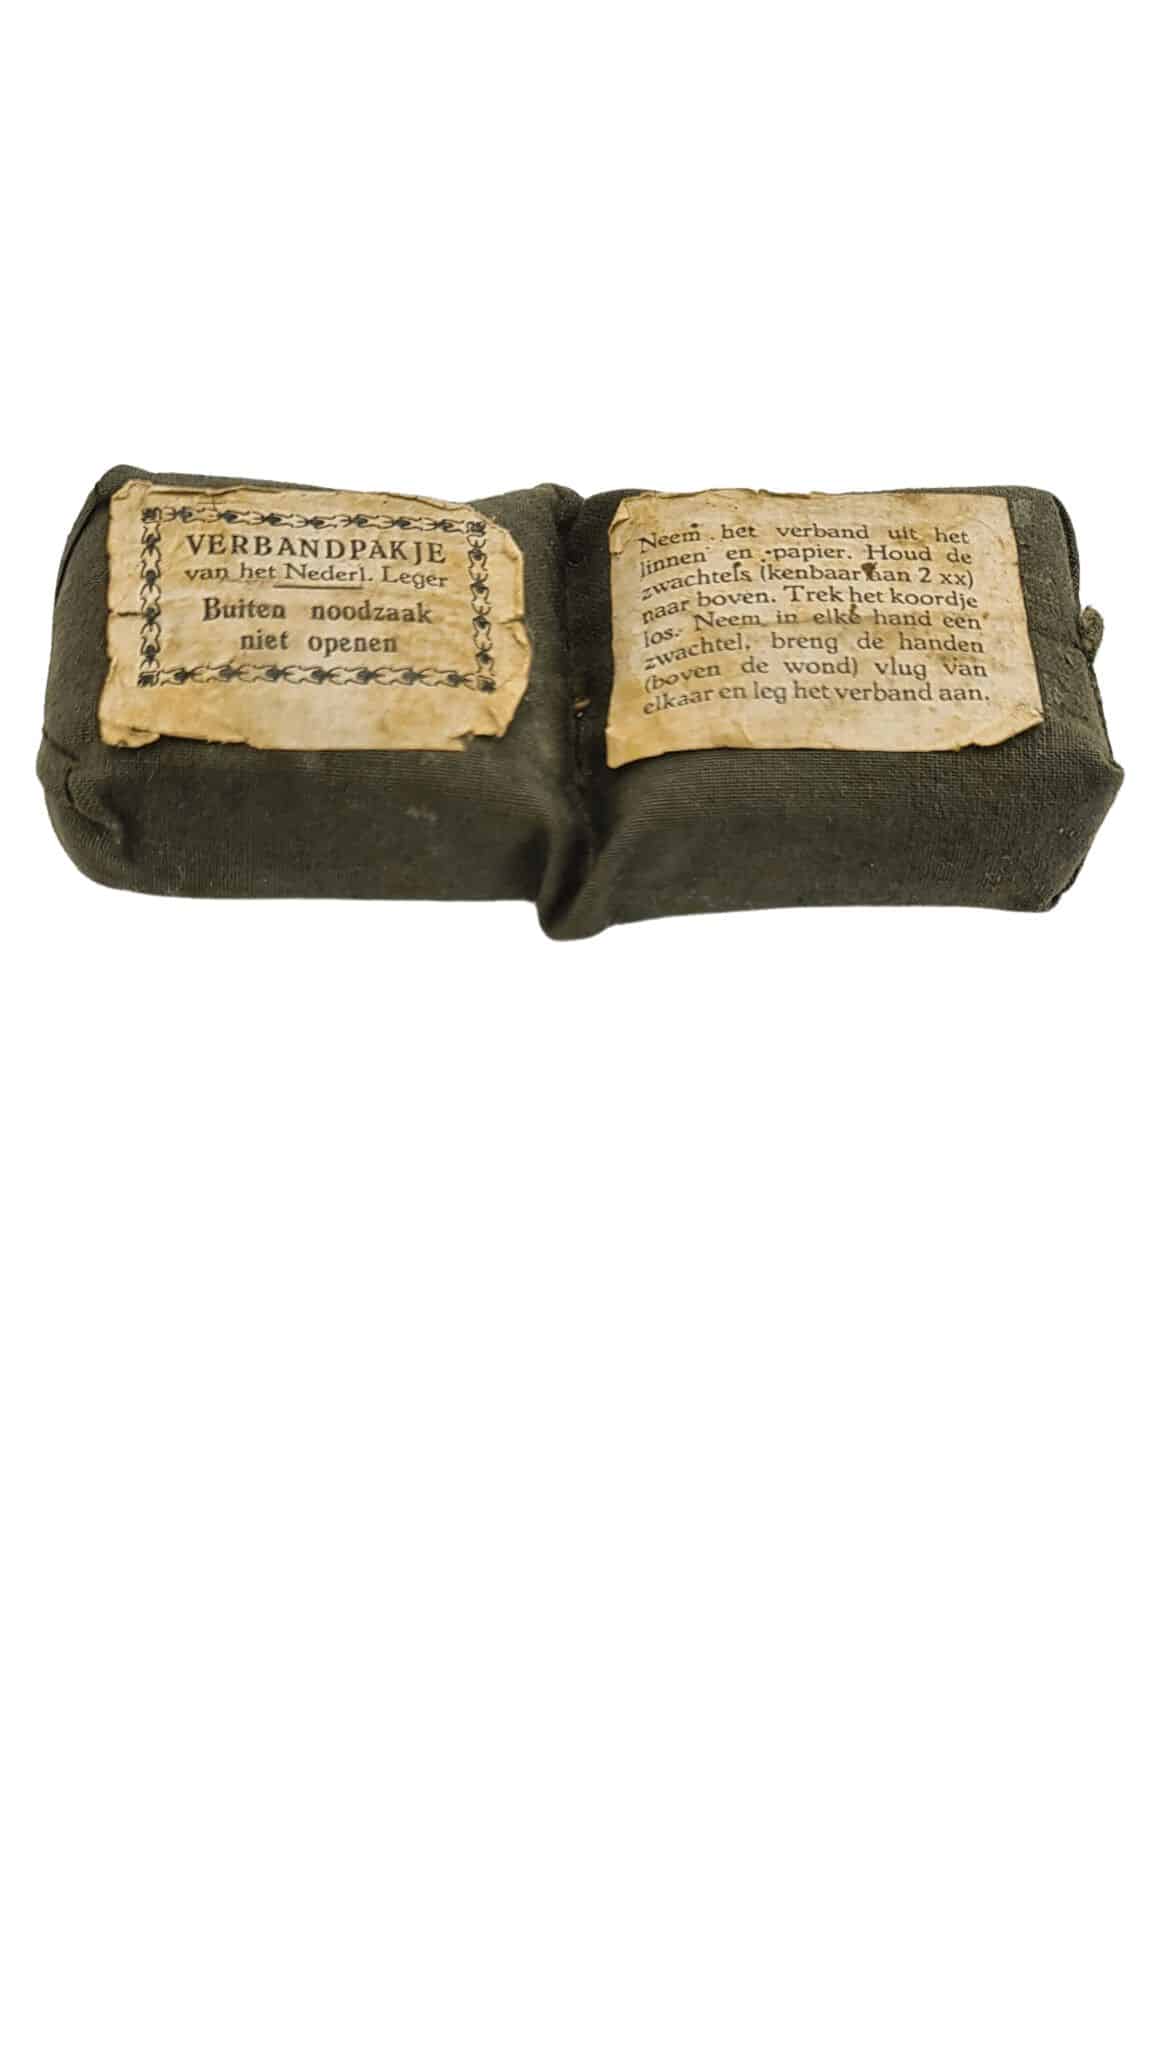 VERBANDPAKJE
van het Nederl. Leger
Buiten noodzaak
niet openen
Neem het verband uit het
linnen en papier. Houd de
zwachtels (kenbaar aan 2 xx)
naar boven. Trek het koordje
los. Neem in elke hand een
zwachtel, breng de handen
(boven de wond) vlug van
elkaar en leg het verband aan.